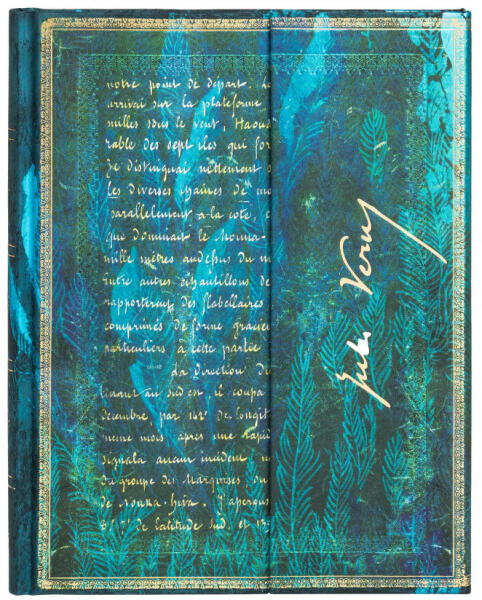 notre point de depart. Le
arrivai sur la plateforme
milles sous le vent, Haoua
rable des sept iles que for
Je distinguai nettement
les diverses chaines de mo
parallelement à la coté, e
que dominait le Mouna-
mille mètres audessus du n
Entre autres échantillons de
rapportèrent des flabellaires
comprimés de forme gracieu
particuliers à cette partie
La direction Du
au sud est, il coupa
décembre, par 142° De longit
meme mois, apres une rapid
signala aucun incident, n
Du groupe des Marquises ou
de Nouka-hiva. J'aperçus
8° de latitude Sud. et 13
Jules Verne